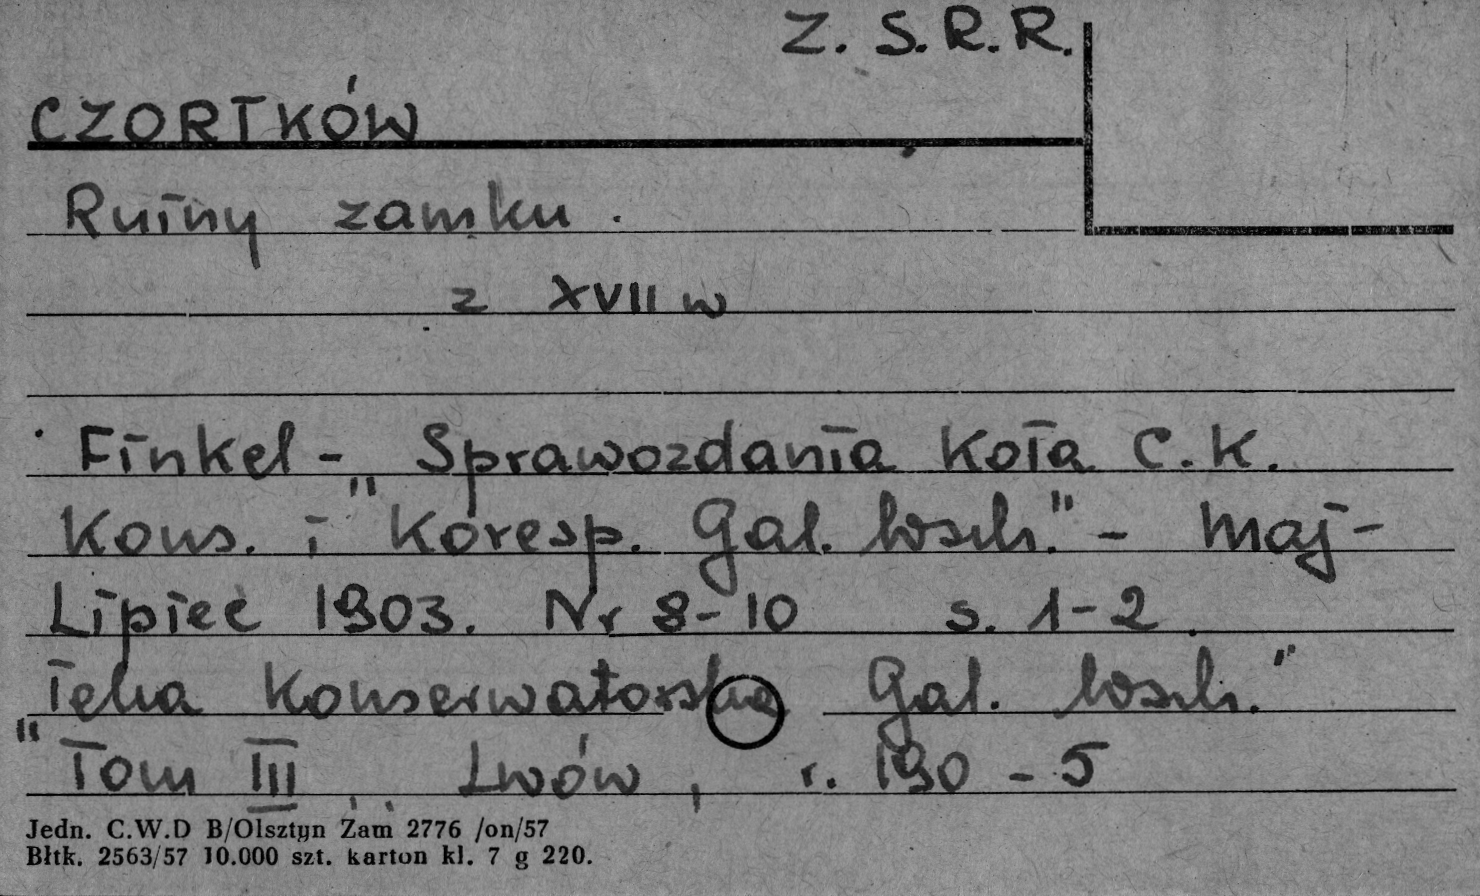 Z. S. R. R.
CZORTKÓW
Ruiny zamku.
z XVII w
Finkel - Sprawozdania Koła C. K.
Kons. i "Koresp. Gal. Wsch." - Maj -
Lipiec 1903. Nr 8-10 s. 1-2.
Teka Konserwatorska Gal. Wsch."
"Tom III, Lwów, r. 190 - 5
Jedn. C.W.D B/Olsztyn Zam 2776 /on/57
Błtk. 2563/57 10.000 szt. karton kl. 7 g 220.